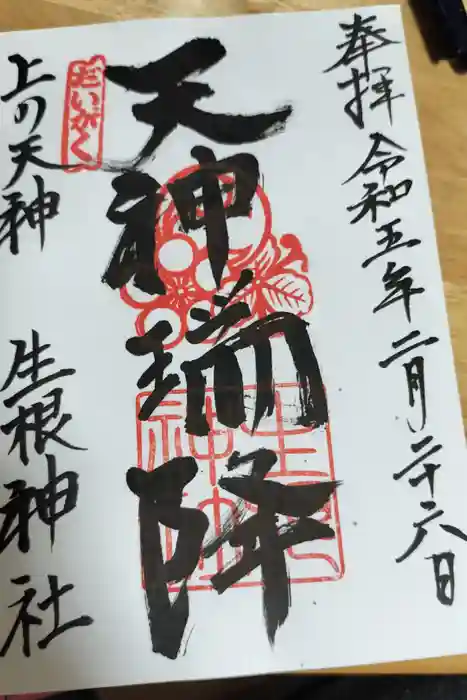 奉拝 令和五年二月二十六日
天神瑞降
だいがく
上の天神 生根神社
生根神社